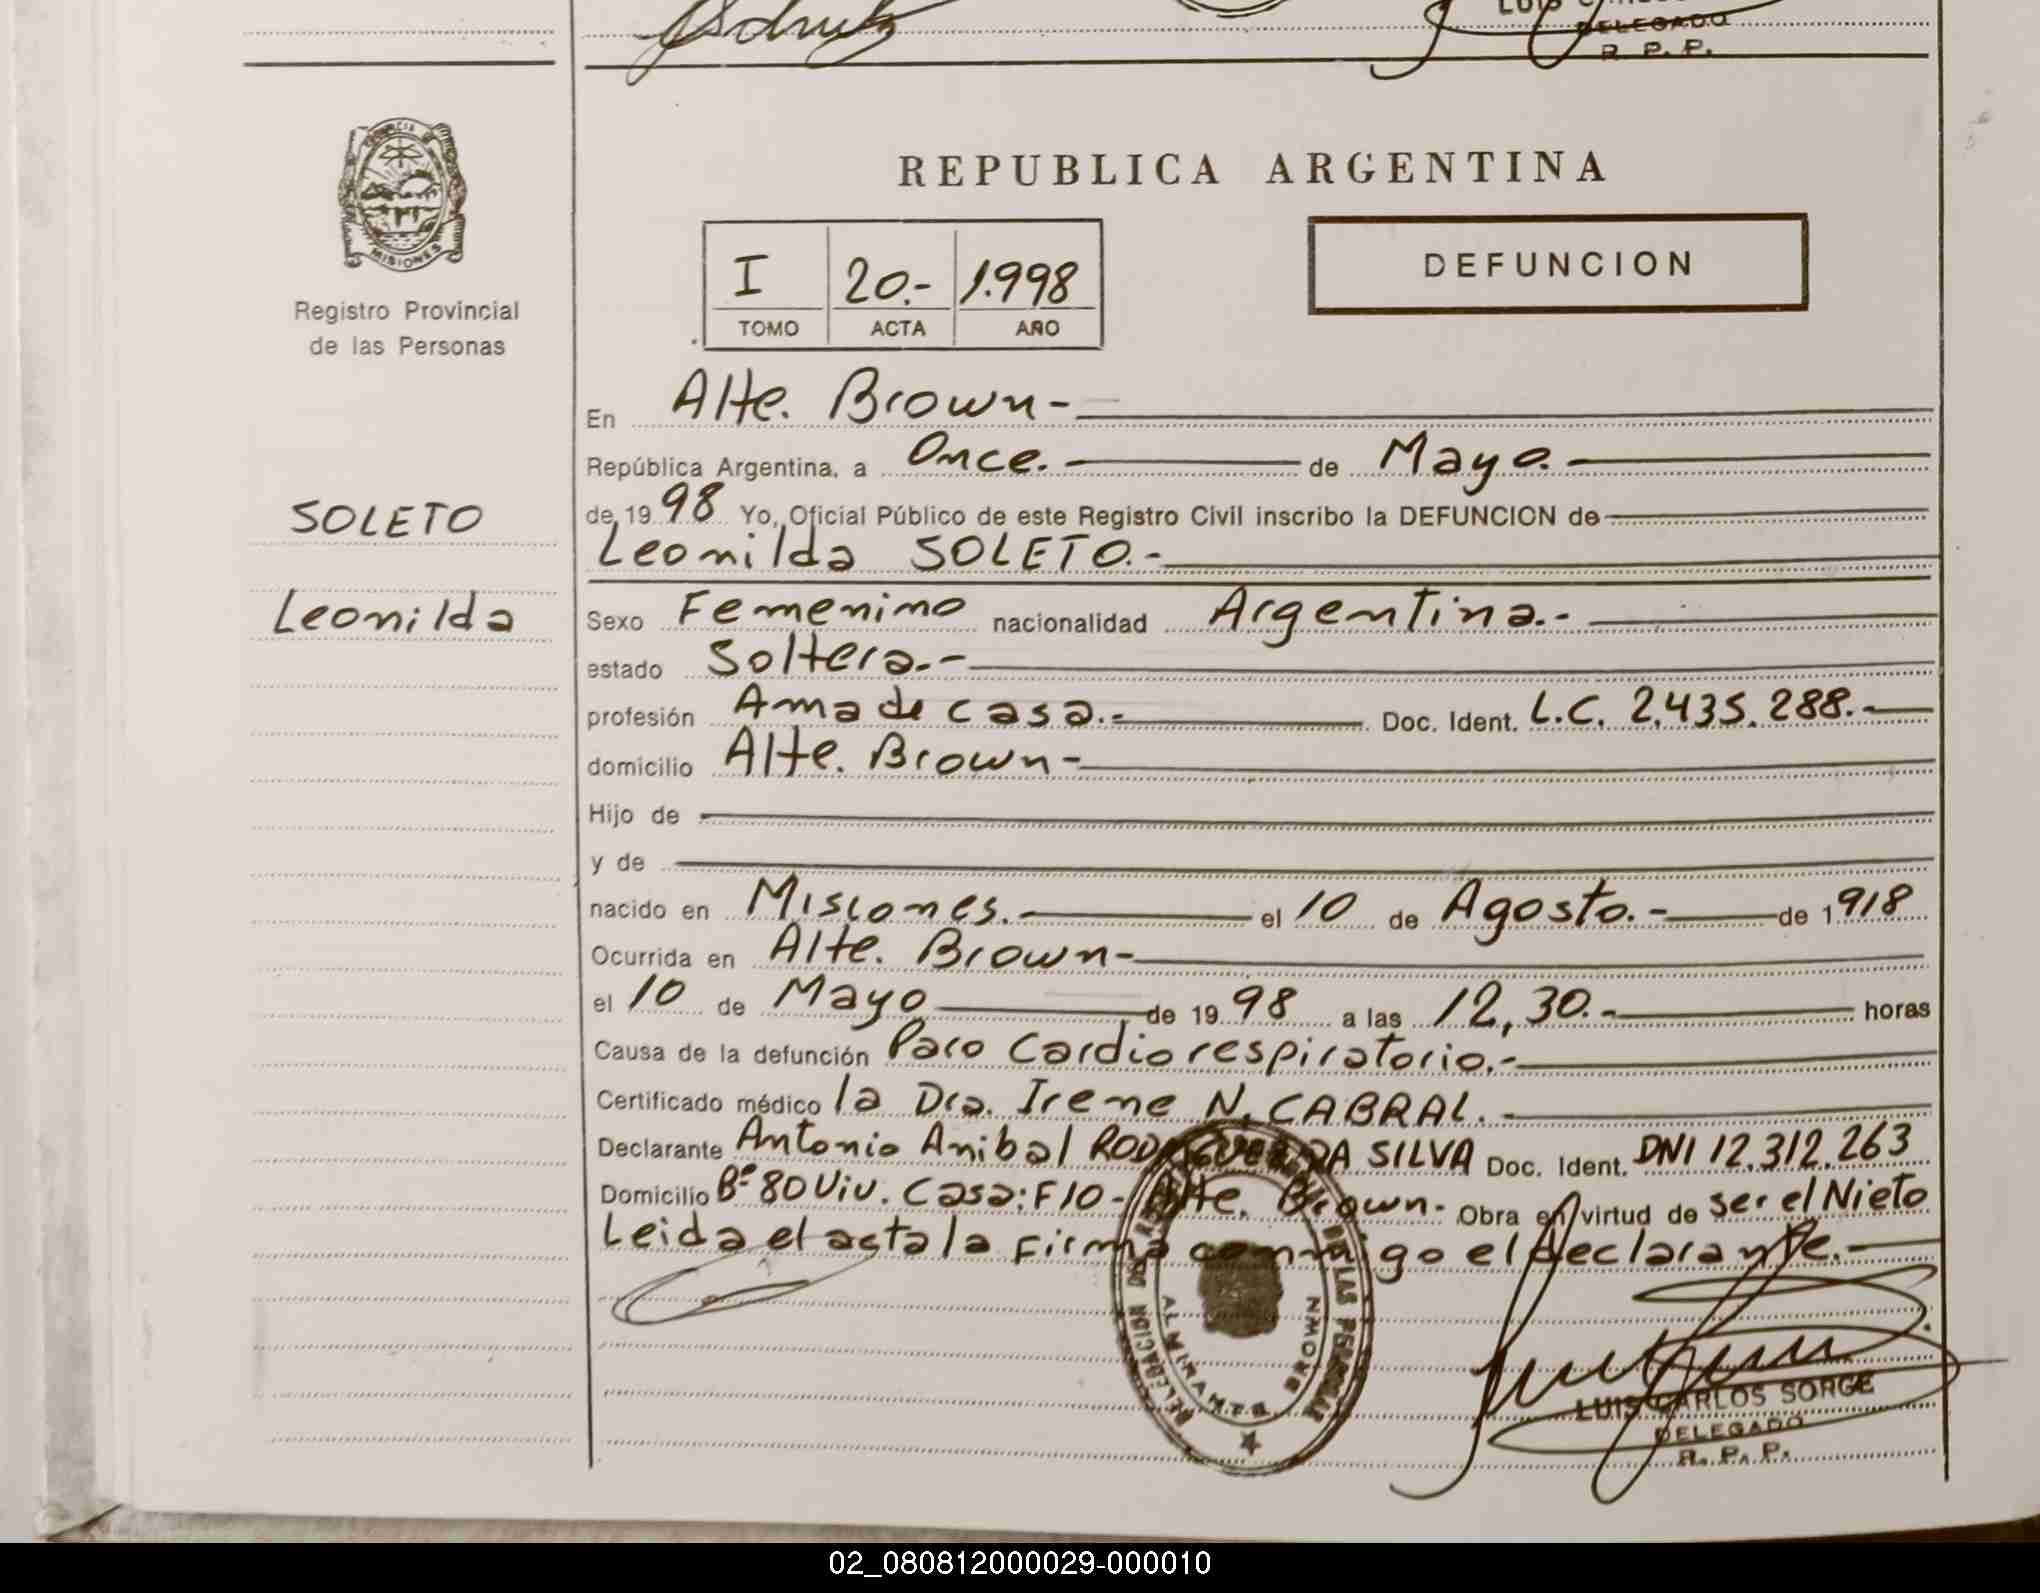 LUIS
DELEGADO
R. P. P.
PROVINCIA DE
MISIONES
Registro Provincial
de las Personas
REPUBLICA ARGENTINA
I 20.- 1.998
TOMO ACTA AÑO
DEFUNCION
En Alte. Brown-
República Argentina, a Once. de Mayo.
SOLETO
de 19 98 Yo, Oficial Público de este Registro Civil inscribo la DEFUNCION de
Leonilda SOLETO.-
Leonilda
Sexo Femenino nacionalidad Argentina.-
estado Soltera.-
profesión Ama de casa.- Doc. Ident. L.C. 2.435.288.-
domicilio Alte. Brown-
Hijo de
y de
nacido en Misiones. el 10 de Agosto.- de 1918
Ocurrida en Alte. Brown-
el 10 de Mayo de 19 98 a las 12,30.- horas
Causa de la defunción Paro Cardiorespiratorio.-
Certificado médico la Dra. Irene N. CABRAL.-
Declarante Antonio Anibal RODRIGUEZ DA SILVA Doc. Ident. DNI 12.312.263
Domicilio Bº 80 Viv. Casa: F10- Alte. Brown- Obra en virtud de ser el Nieto
Leida el acta la firma conmigo el declarante.-
DELEGACION DE LAS PERSONAS
ALMIRANTE BROWN
LUIS CARLOS SORGE
DELEGADO
R. P. P.
02_080812000029-000010